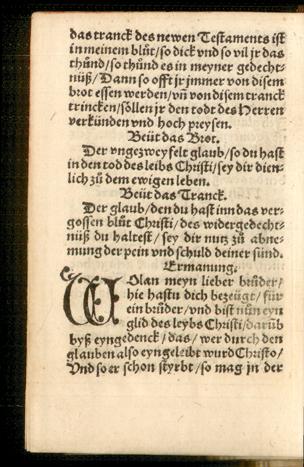 das tranck des newen Testaments ist
in meinem blůt/so dick vnd so vil jr das
thůnd/so thůnd es in meyner gedecht⸗
nüß/Dann so offt jr jmmer von disem
brot essen werden/vñ von disem tranck
trincken/söllen jr den todt des Herren
verkünden vnd hoch preysen.
Beüt das Brot.
Der vngezweyfelt glaub/so du hast
in den tod des leibs Christi/sey dir dien⸗
lich zů dem ewigen leben.
Beüt das Tranck.
Der glaub/den du hast inn das ver⸗
gossen blůt Christi/des widergedecht⸗
nüß du haltest/ sey dir nutz zů abne⸗
mung der pein vnd schuld deiner sünd.
Ermanung.
WOlan meyn lieber brůder/
hie hastu dich bezeügt/ für
ein brůder/vnd bist nůn eyn
glid des leybs Christi/darůb
byß eyngedenck/das/wer durch den
glauben also eyngeleibt wurd Christo/
Vnd so er schon styrbt/so mag in der